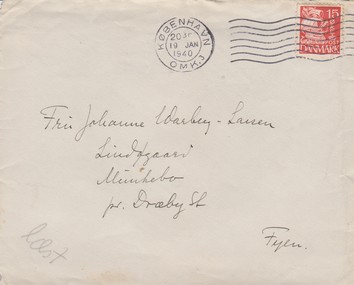 KØBENHAVN
20 30
19 JAN
1940
OMK. 3
15
DANMARK
Fru Johanne Warberg-Larsen
Lindøgaard
Munkebo
pr. Dræby St
Fyen.
Læst